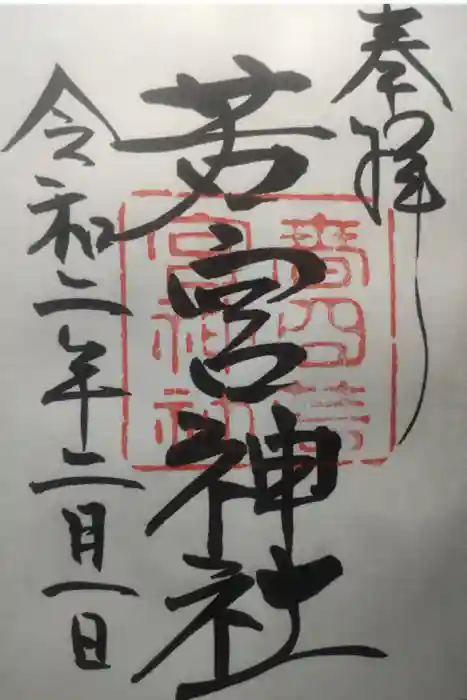 奉拝
若宮神社
令和二年二月一日